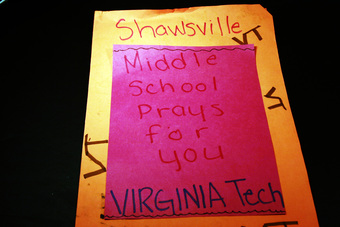 Shawsville
VT
Middle
School
Prays
for
you
VT
VT
VIRGINIA Tech
VT